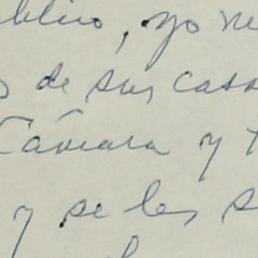 blico, yo ne
s de sus casa
Cámara y t
y se les s